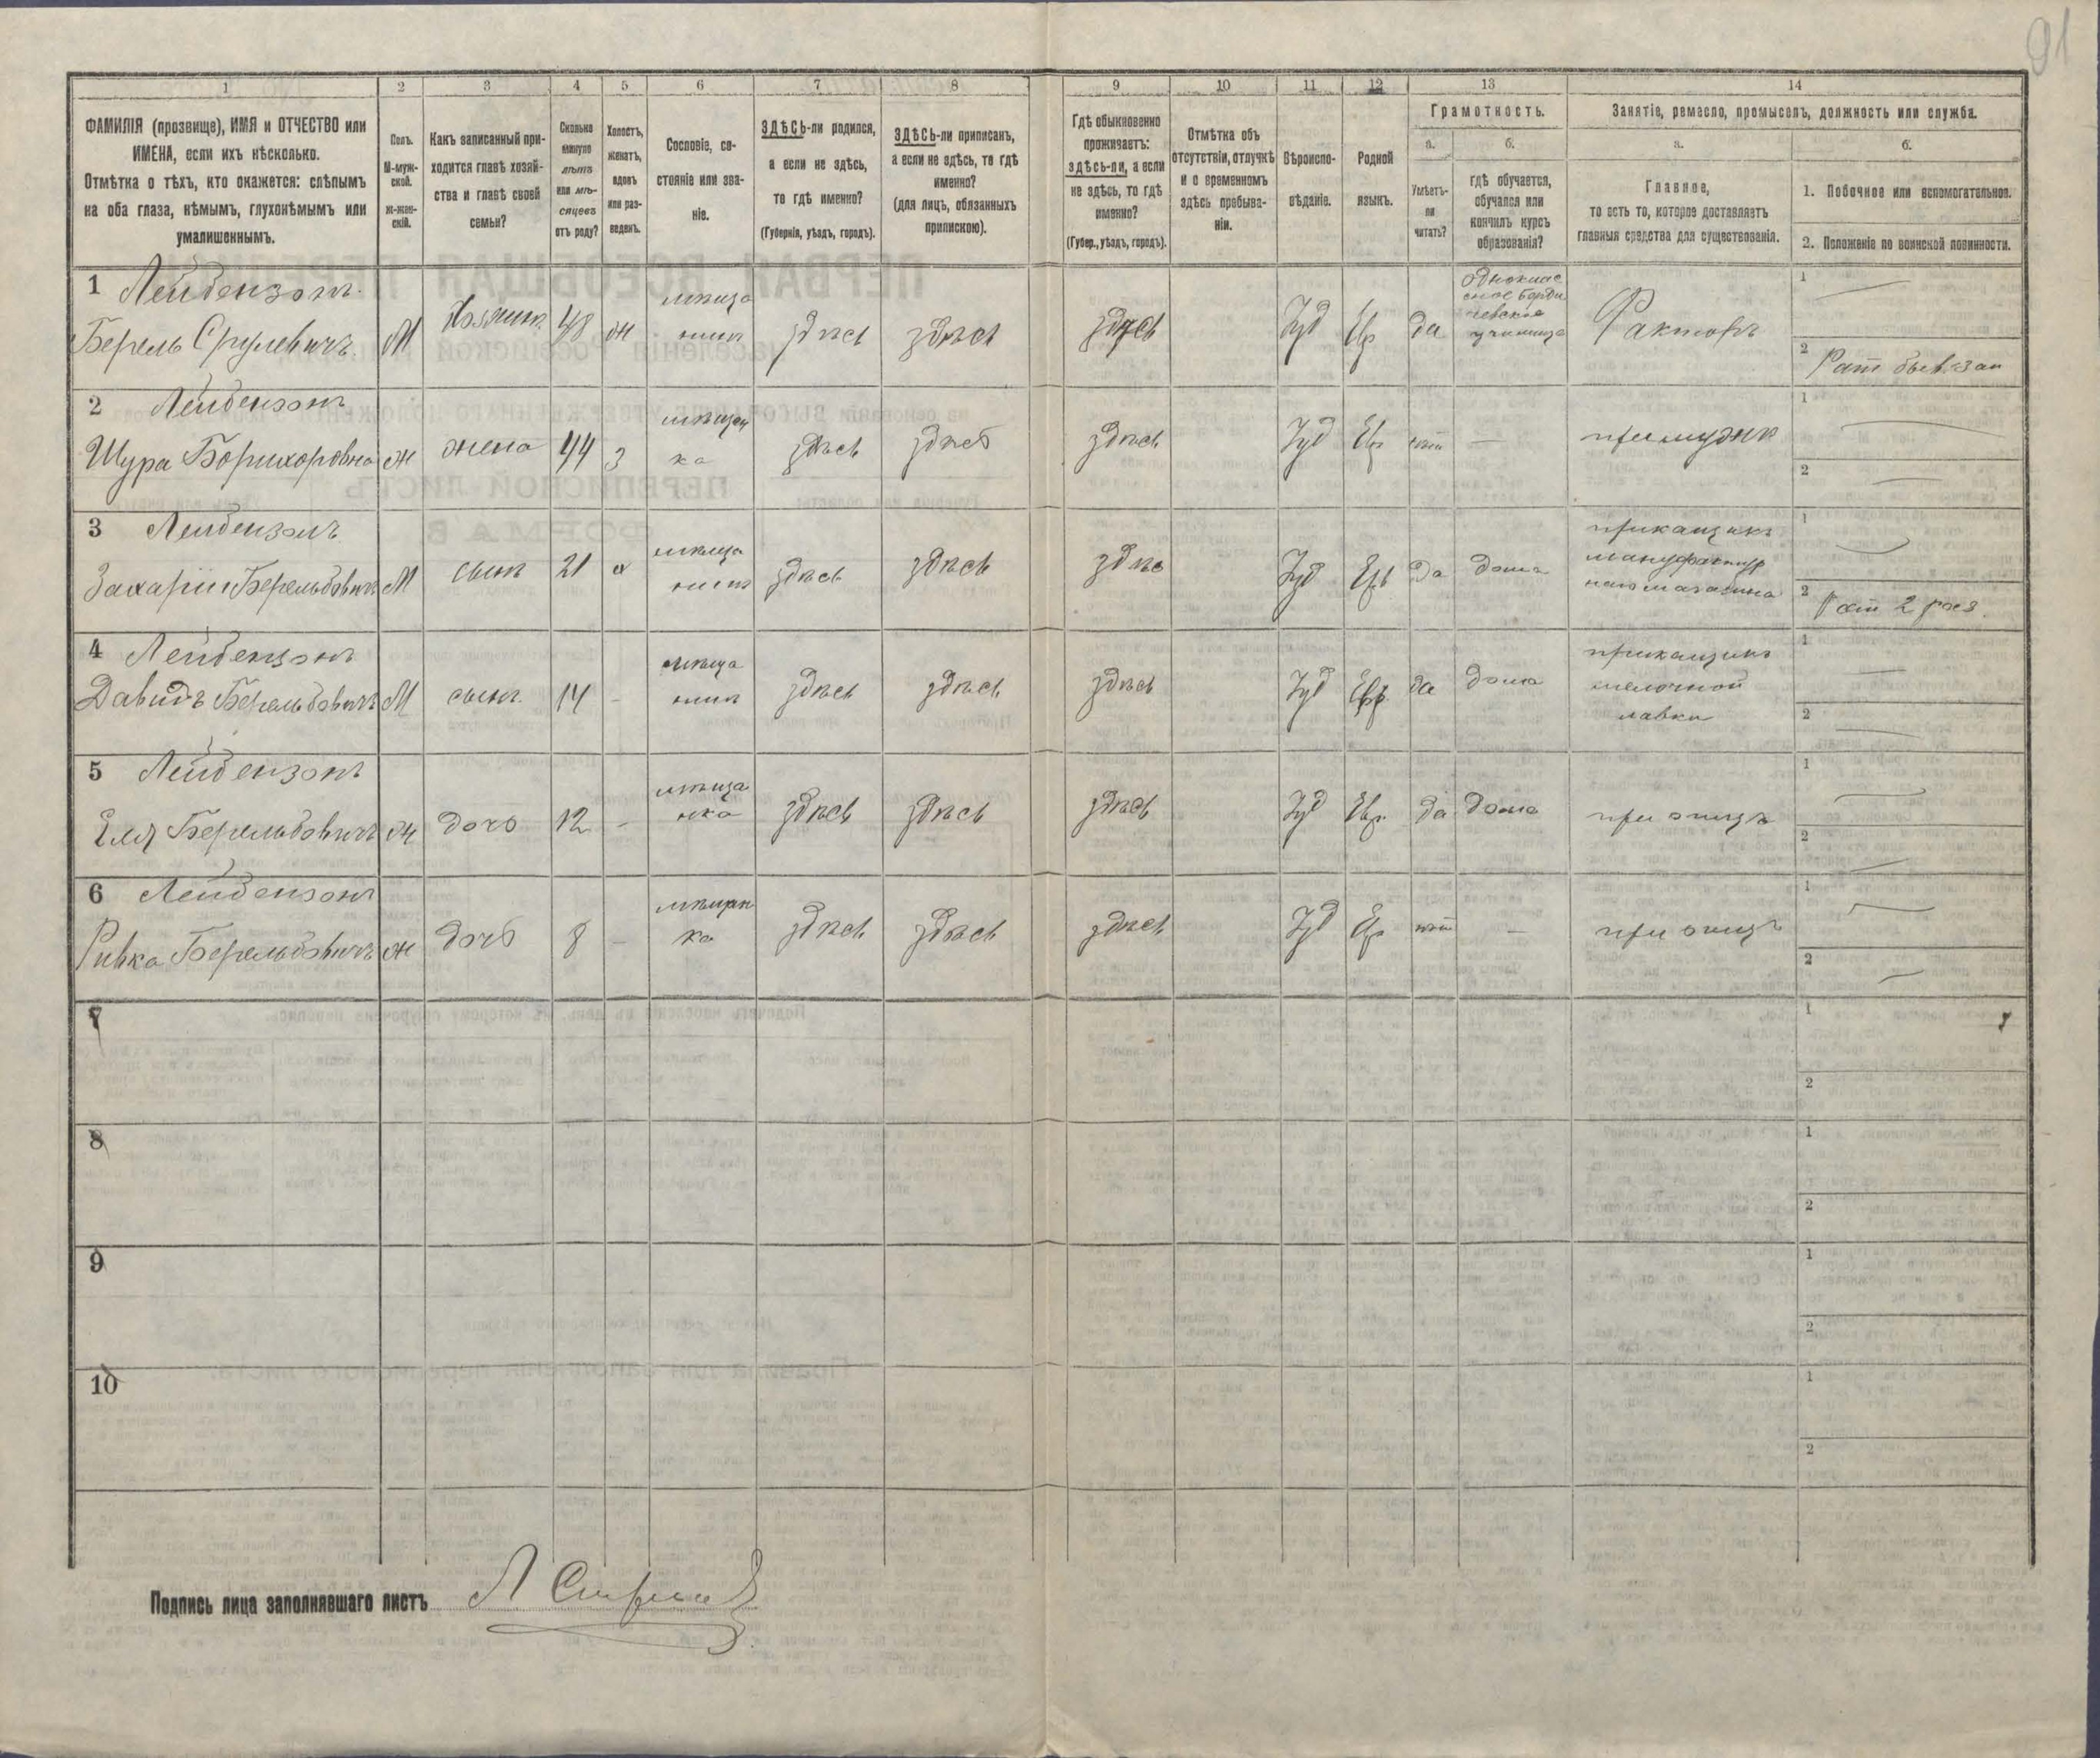 91
1
2
3
4
5
6
7
8
9
10
11
12
13
14
ФАМИЛІЯ (прозвище), ИМЯ и ОТЧЕСТВО или
ИМЕНА, если ихъ нѣсколько.
Отмѣтка о тѣхъ, кто окажется: слѣпымъ
на оба глаза, нѣмымъ, глухонѣмымъ или
умалишеннымъ.
Полъ.
М-муж-
ской.
Ж-жен-
скій.
Какъ записанный при-
ходится главѣ хозяй-
ства и главѣ своей
семьи?
Сколько
минуло
лѣтъ
или мѣ-
сяцевъ
отъ роду?
Холостъ,
женатъ,
вдовъ
или раз-
веденъ.
Сословіе, со-
стояніе или зва-
ніе.
ЗДѢСЬ-ли родился,
а если не здѣсь,
то гдѣ именно?
(Губернія, уѣздъ, городъ).
ЗДѢСЬ-ли приписанъ,
а если не здѣсь, то гдѣ
именно?
(для лицъ, обязанныхъ
припискою).
Гдѣ обыкновенно
проживаетъ:
здѣсь-ли, а если
не здѣсь, то гдѣ
именно?
(Губер., уѣздъ, городъ).
Отмѣтка объ
отсутствіи, отлучкѣ
и о временномъ
здѣсь пребыва-
ніи.
Вѣроиспо-
вѣданіе.
Родной
языкъ.
Грамотность.
а.
Умѣетъ-
ли
читать?
б.
гдѣ обучается,
обучался или
кончилъ курсъ
образованія?
Занятіе, ремесло, промыселъ, должность или служба.
а.
Главное,
то есть то, которое доставляетъ
главныя средства для существованія.
б.
1. Побочное или вспомогательное.
2. Положеніе по воинской повинности.
1 Лейдензонъ
Берель Срулевичъ М Хозяинъ 48 ж мѣща
нинъ здѣсь здѣсь здѣсь Іуд Евр да
однокласс
ное Берди
чевское
училище
Факторъ
1
2
2 Лейдензонъ
Шура ж жена 44 з мѣщан
ка здѣсь здѣсь здѣсь Іуд Евр нѣтъ — при мужѣ
1
2
3 Лейдензонъ
Захарій Берельдовичъ М сынъ 21 х мѣща
нинъ здѣсь здѣсь здѣсь Іуд Евр да дома
приказчикъ
мануфактур
наго магазина
1
2 Рат 2 раз
4 Лейдензонъ
Давидъ Берельдовичъ М сынъ 14 - мѣща
нинъ здѣсь здѣсь здѣсь Іуд Евр да дома
приказчикъ
мелочной
лавки
1
2
5 Лейдензонъ
Еля Берельдовичъ ж дочь 12 - мѣща
нка здѣсь здѣсь здѣсь Іуд Евр да дома при отцѣ
1
2
6 Лейдензонъ
Ривка Берельдовичъ ж дочь 8 - мѣщан
ка здѣсь здѣсь здѣсь Іуд Евр нѣтъ — при отцѣ
1
2
7
1
2
8
1
2
9
1
2
10
1
2
Подпись лица заполнявшаго листъ